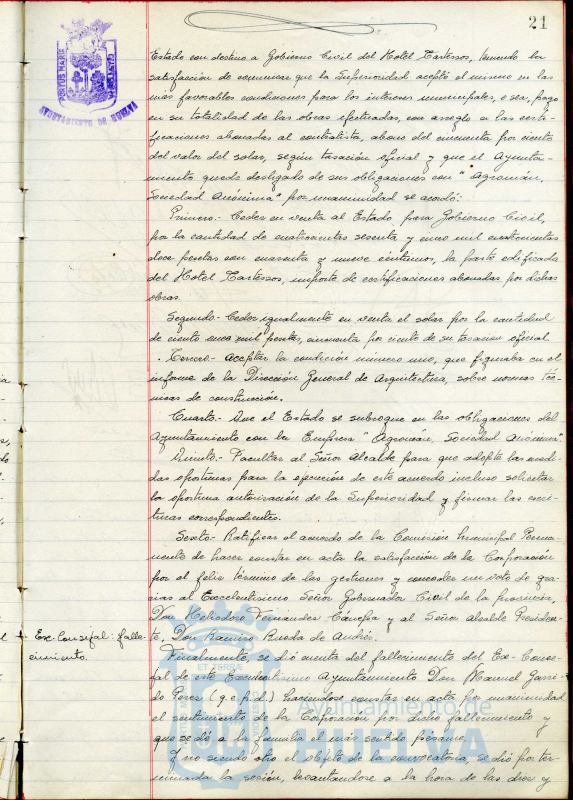 21
PORTUS MARIS
ET TERRAE CUSTODIA
AYUNTAMIENTO DE HUELVA
Estado con destino a Gobierno Civil del Hotel Tartessos, teniendo la
satisfacción de comunicar que la Superioridad aceptó el mismo en las
mas favorables condiciones para los intereses municipales, o sea, pago
en su totalidad de las obras efectuadas, con arreglo a las certi-
ficaciones abonadas al contratista, abono del cincuenta por ciento
del valor del solar, según tasación oficial y que el Ayunta-
miento quede desligado de sus obligaciones con "Agromán,
Sociedad Anónima" por unanimidad se acordó:
Primero.- Ceder en venta al Estado para Gobierno Civil,
por la cantidad de cuatrocientas sesenta y cinco mil cuatrocientas
doce pesetas con cuarenta y nueve céntimos, la parte edificada
del Hotel Tartessos, importe de certificaciones abonadas por dichas
obras.
Segundo.- Ceder igualmente en venta el solar por la cantidad
de ciento once mil pesetas, cincuenta por ciento de su tasación oficial.
Tercero.- Aceptar la condición número uno, que figuraba en el
informe de la Dirección General de Arquitectura, sobre normas téc-
nicas de construcción.
Cuarto.- Que el Estado se subrogue en las obligaciones del
Ayuntamiento con la Empresa "Agromán, Sociedad Anónima"
Quinto.- Facultar al Señor Alcalde para que adopte las medi-
das oportunas para la ejecución de este acuerdo incluso solicitar
la oportuna autorización de la Superioridad y firmar las escri-
turas correspondientes.
Sexto.- Ratificar el acuerdo de la Comisión Municipal Perma-
nente de hacer constar en acta la satisfacción de la Corporación
por el feliz término de las gestiones y conceder un voto de gra-
cias al Excelentísimo Señor Gobernador Civil de la provincia,
Don Heliodoro Fernandez Cánepa y al Señor Alcalde Presiden-
te, Don Ramiro Rueda de Andrés.
Ex-Concejal: falle-
cimiento.
Finalmente, se dió cuenta del fallecimiento del Ex-Conce-
jal de este Excelentísimo Ayuntamiento Don Manuel Garri-
do Perez (q.e.p.d.) haciendose constar en acta por unanimidad
el sentimiento de la Corporación por dicho fallecimiento y
que se dió a la familia el más sentido pésame.
Y no siendo otro el objeto de la convocatoria, se dió por ter-
minada la sesión, levantandose a la hora de las diez y
Ayuntamiento de
HUELVA